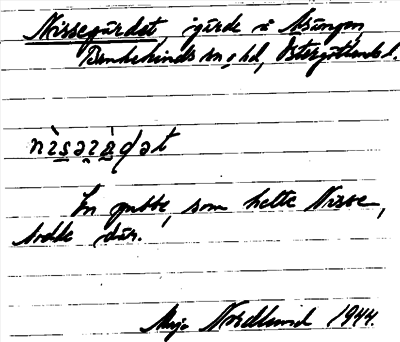 Nissegärdet, gärde i Åsängen,
Bankekinds sn o hd, Östergötlands l.
En gubbe, som hette Nisse,
bodde där.
Maja Nordlund 1944.